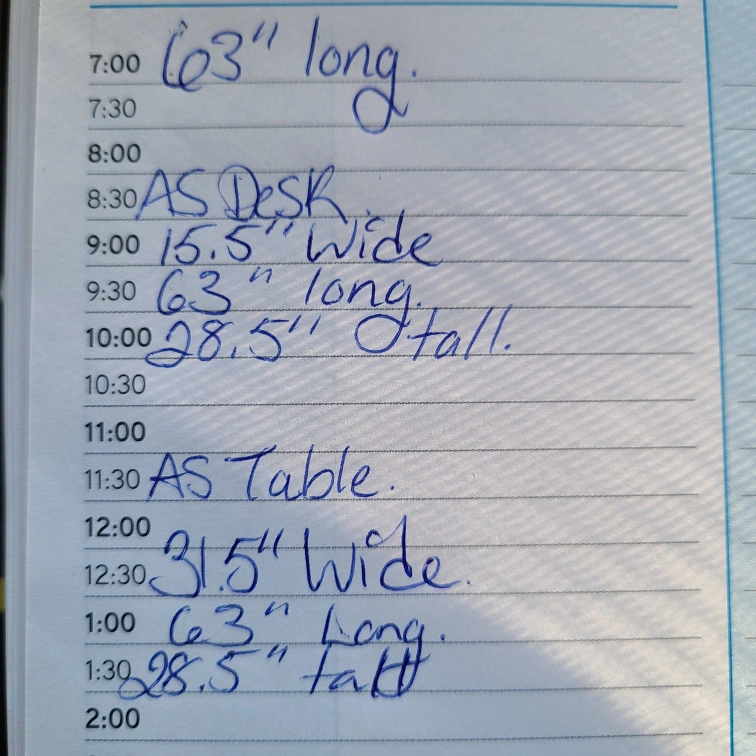 7:00 63" long.
7:30
8:00
8:30 AS Desk.
9:00 15.5" Wide
9:30 63" long.
10:00 28.5" tall.
10:30
11:00
11:30 AS Table.
12:00
12:30 31.5" Wide.
1:00 63" Long.
1:30 28.5" tall
2:00